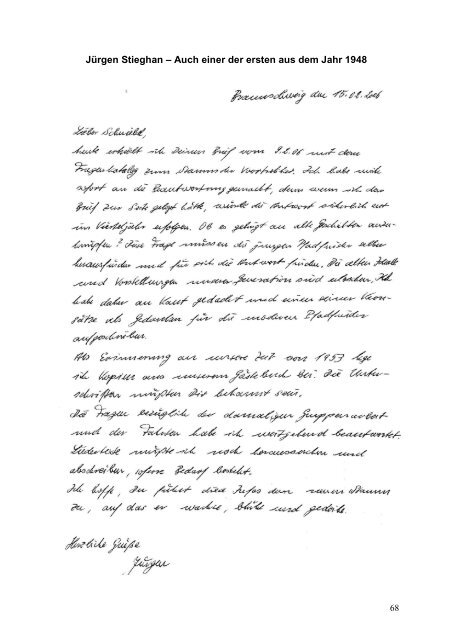 Jürgen Stieghan – Auch einer der ersten aus dem Jahr 1948
Braunschweig den 15.02.2006
Lieber
heute erhielt ich Deinen Brief vom 9.2.06 mit dem
Fragenkatalog zum Stamm der Ich habe mich
sofort an die Beantwortung gemacht, denn wenn ich den
Brief zur Seite gelegt hätte, würde die Antwort sicherlich erst
im Vierteljahr erfolgen. Ob es gelingt an alte anzu-
knüpfen? Diese Frage müssen die jungen Pfadfinder selber
herausfinden und für sich die Antwort finden. Die alten Ideale
und Vorstellungen unserer Generation sind erloschen. Ich
habe daher an Kant gedacht und einen seiner
sätze als Gedanken für die modernen Pfadfinder
aufgeschrieben.
Als Erinnerung an unsere Zeit von 1953 lege
ich Kopien aus unserem Gästebuch bei. Die Unter-
schriften müßten Dir bekannt sein.
Die Fragen bezüglich der damaligen Gruppenarbeit
und der Fahrten habe ich weitgehend beantwortet.
Liedertexte müßte ich noch heraussuchen und
abschreiben, sofern Bedarf besteht.
Ich hoffe, Du führst diese Infos dem neuen Stamm
zu, auf das er wachse, blühe und gedeihe.
Herzliche Grüße
Jürgen
68